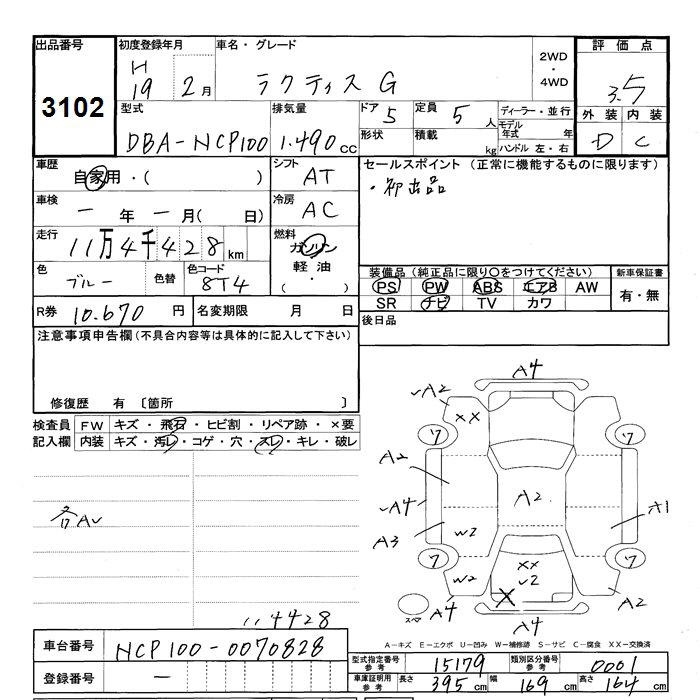 出品番号 初度登録年月 車名・グレード 2WD・4WD 評価点
3102 H19 2月 ラクティス G 3.5
型式 排気量 ドア 5 定員 5人 ディーラー・並行 外装 内装
DBA-NCP100 1.490cc 形状 積載 kg モデル年式 年 D C
ハンドル 左・右
車歴 自家用・( ) シフト AT セールスポイント (正常に機能するものに限ります)
・初出品
車検 一年一月(日) 冷房 AC
走行 11万4千428km 燃料 ガソリン
軽油・( )
色 ブルー 色替 色コード 8T4 装備品(純正品に限り〇をつけてください) 新車保証書
PS PW ABS エアB AW 有・無
SR ナビ TV カワ
R券 10.670円 名変期限 月 日 後日品
注意事項申告欄(不具合内容等は具体的に記入して下さい)
修復歴 有 〔箇所 〕
検査員 FW キズ・飛石・ヒビ割・リペア跡・×要
記入欄 内装 キズ・汚レ・コゲ・穴・スレ・キレ・破レ
A4
A2 XX
ワ ワ
A2
A4 A2 A1
A3 W2
ワ ワ
W2 XX W2
X
スペア A4 A2
A4
各AU
114428
A-キズ E-エクボ U-凹み W-補修跡 S-サビ C-腐食 XX-交換済
車台番号 NCP100-0070828
型式指定番号 参考 15179 類別区分番号 参考 0001
登録番号 —
車庫証明用 参考 長さ 395cm 幅 169cm 高さ 164cm